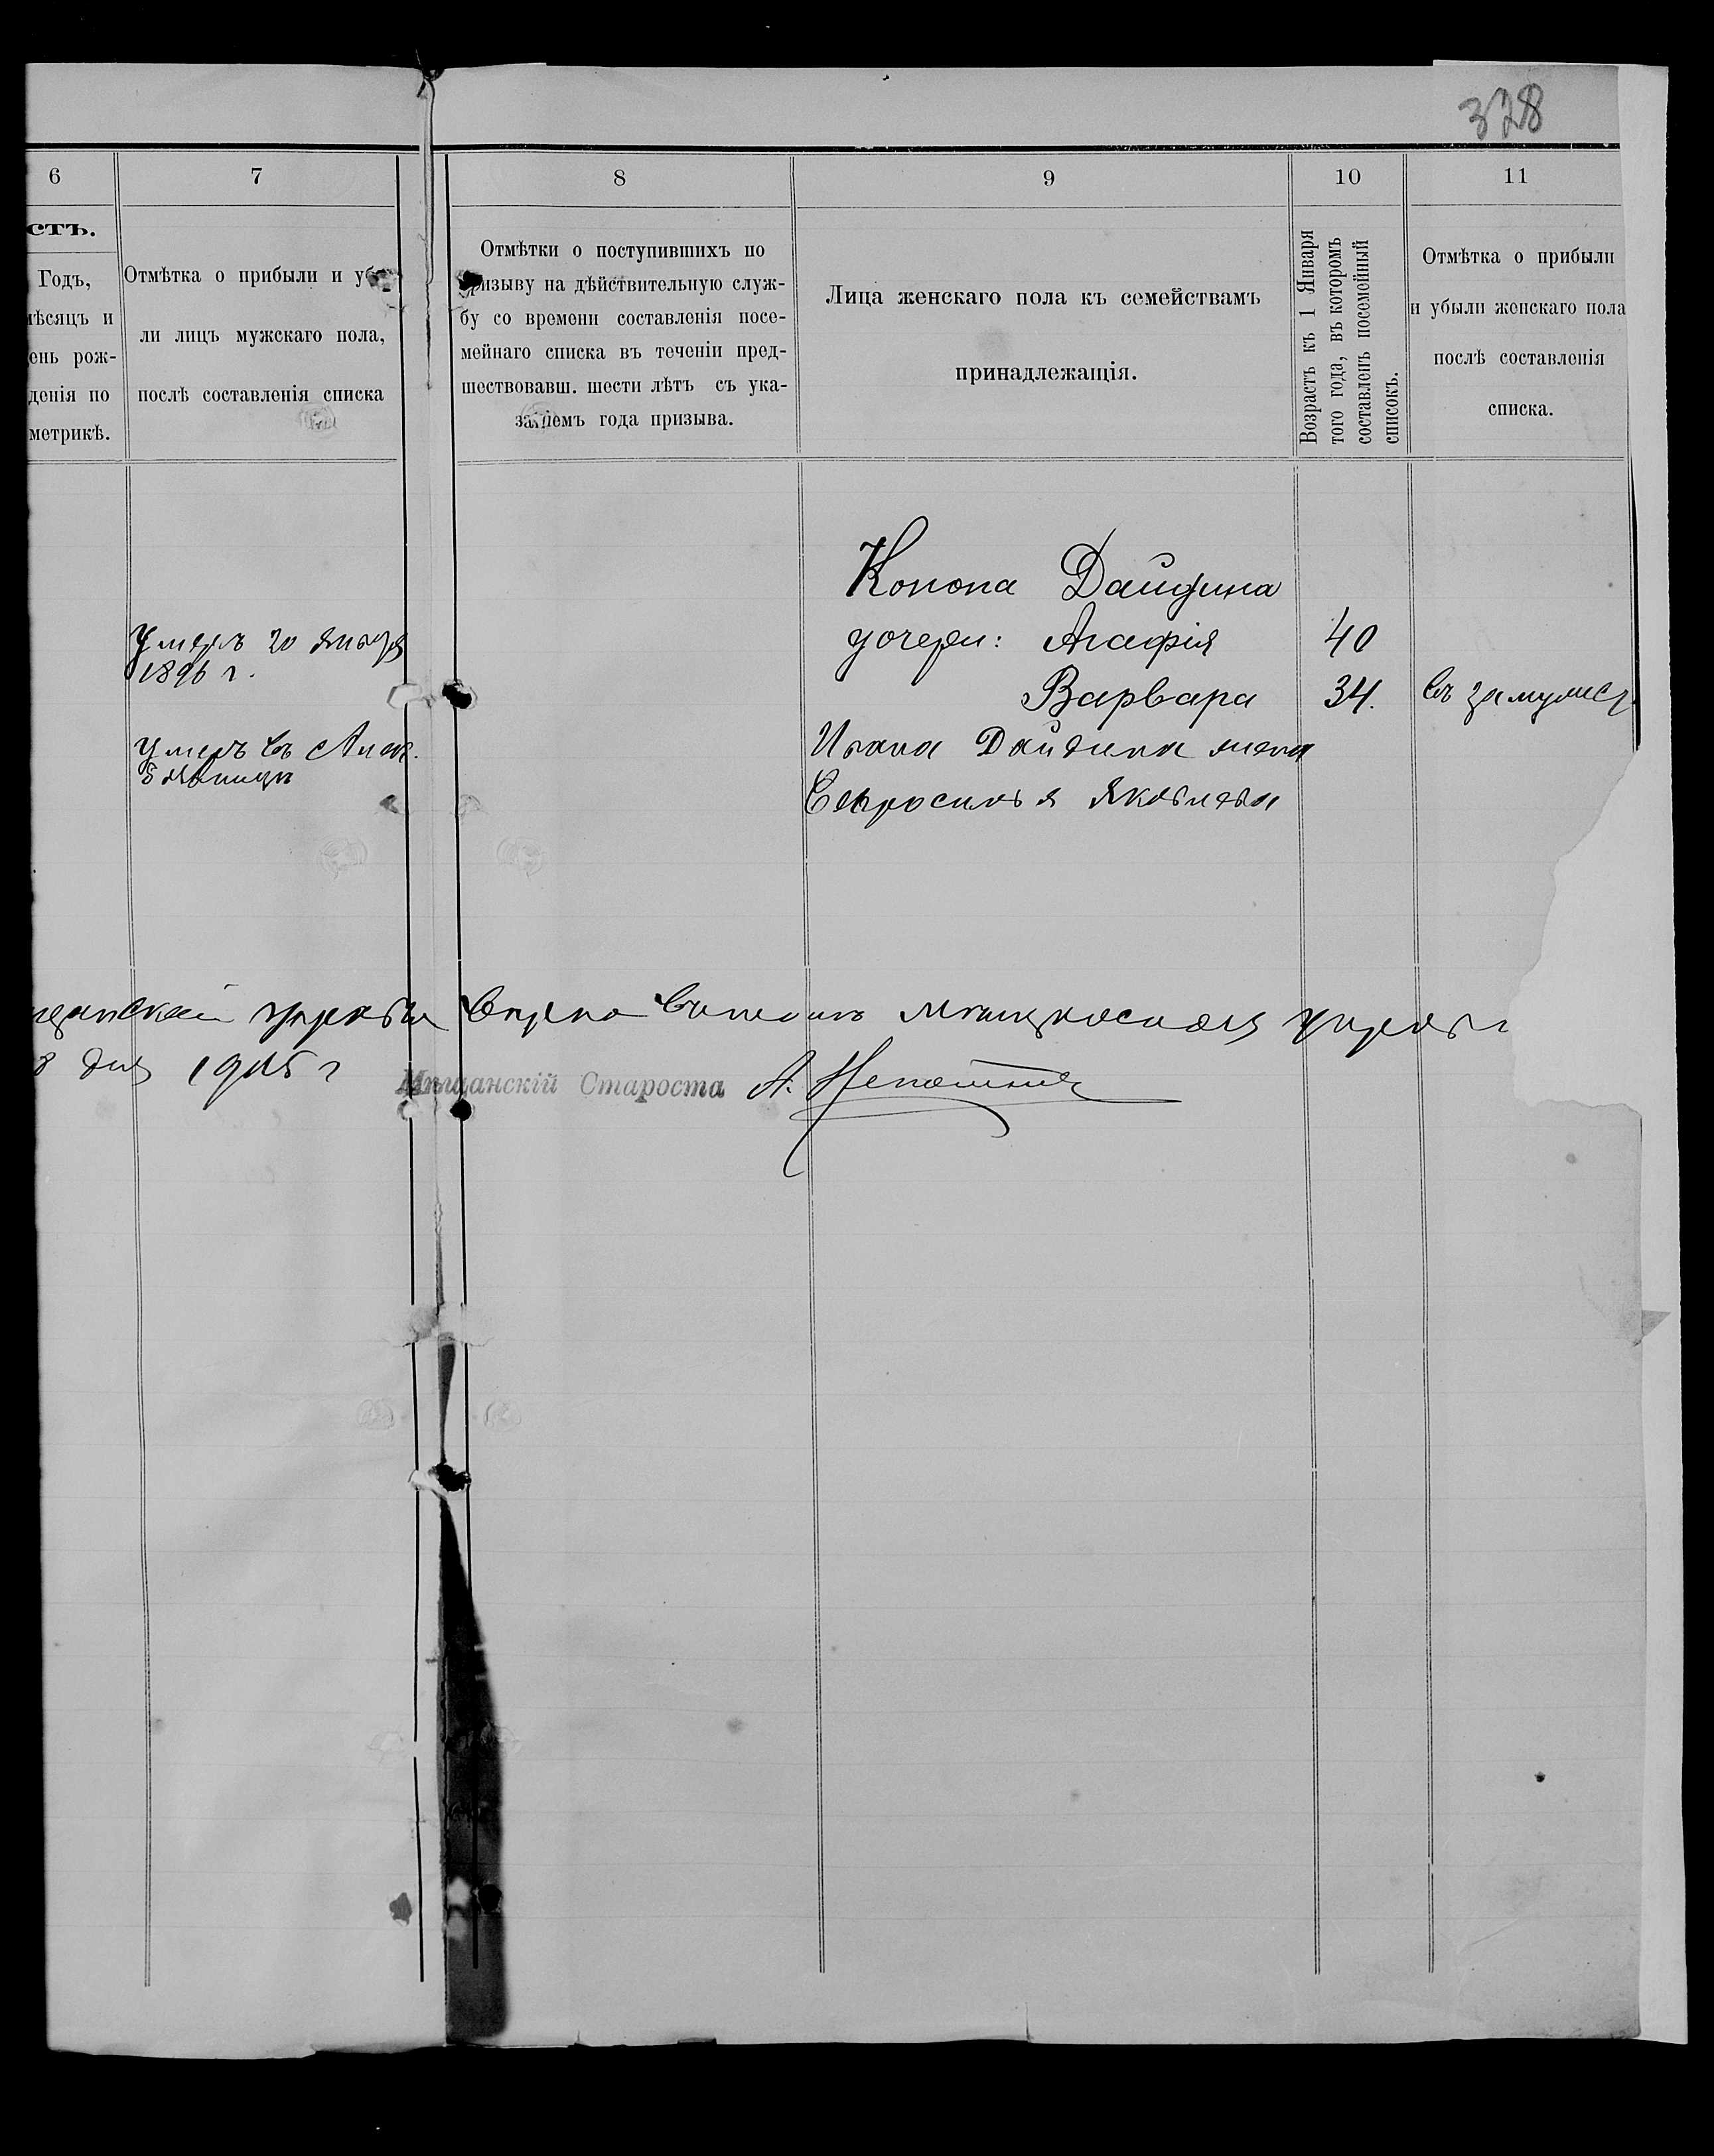 328
6 7 8 9 10 11
сть.
Годъ,
мѣсяцъ и
ень рож-
денія по
метрикѣ.
Отмѣтка о прибыли и убы
ли лицъ мужскаго пола,
послѣ составленія списка
Отмѣтки о поступившихъ по
призыву на дѣйствительную служ-
бу со времени составленія посе-
мейнаго списка въ теченіи пред-
шествовавш. шести лѣтъ съ ука-
заніемъ года призыва.
Лица женскаго пола къ семействамъ
принадлежащія.
Возрастъ къ 1 Января
того года, въ которомъ
составленъ посемейный
списокъ.
Отмѣтка о прибыли
и убыли женскаго пола
послѣ составленія
списка.
Конона Дайдина
Умеръ 20 января дочери: Агафія 40
1896 г.
Варвара 34. въ замужест.
Умеръ въ Ивана Дайдина жена
Евросинья Яковлева
управы
дня 1905 г
Мѣщанскій Староста А.